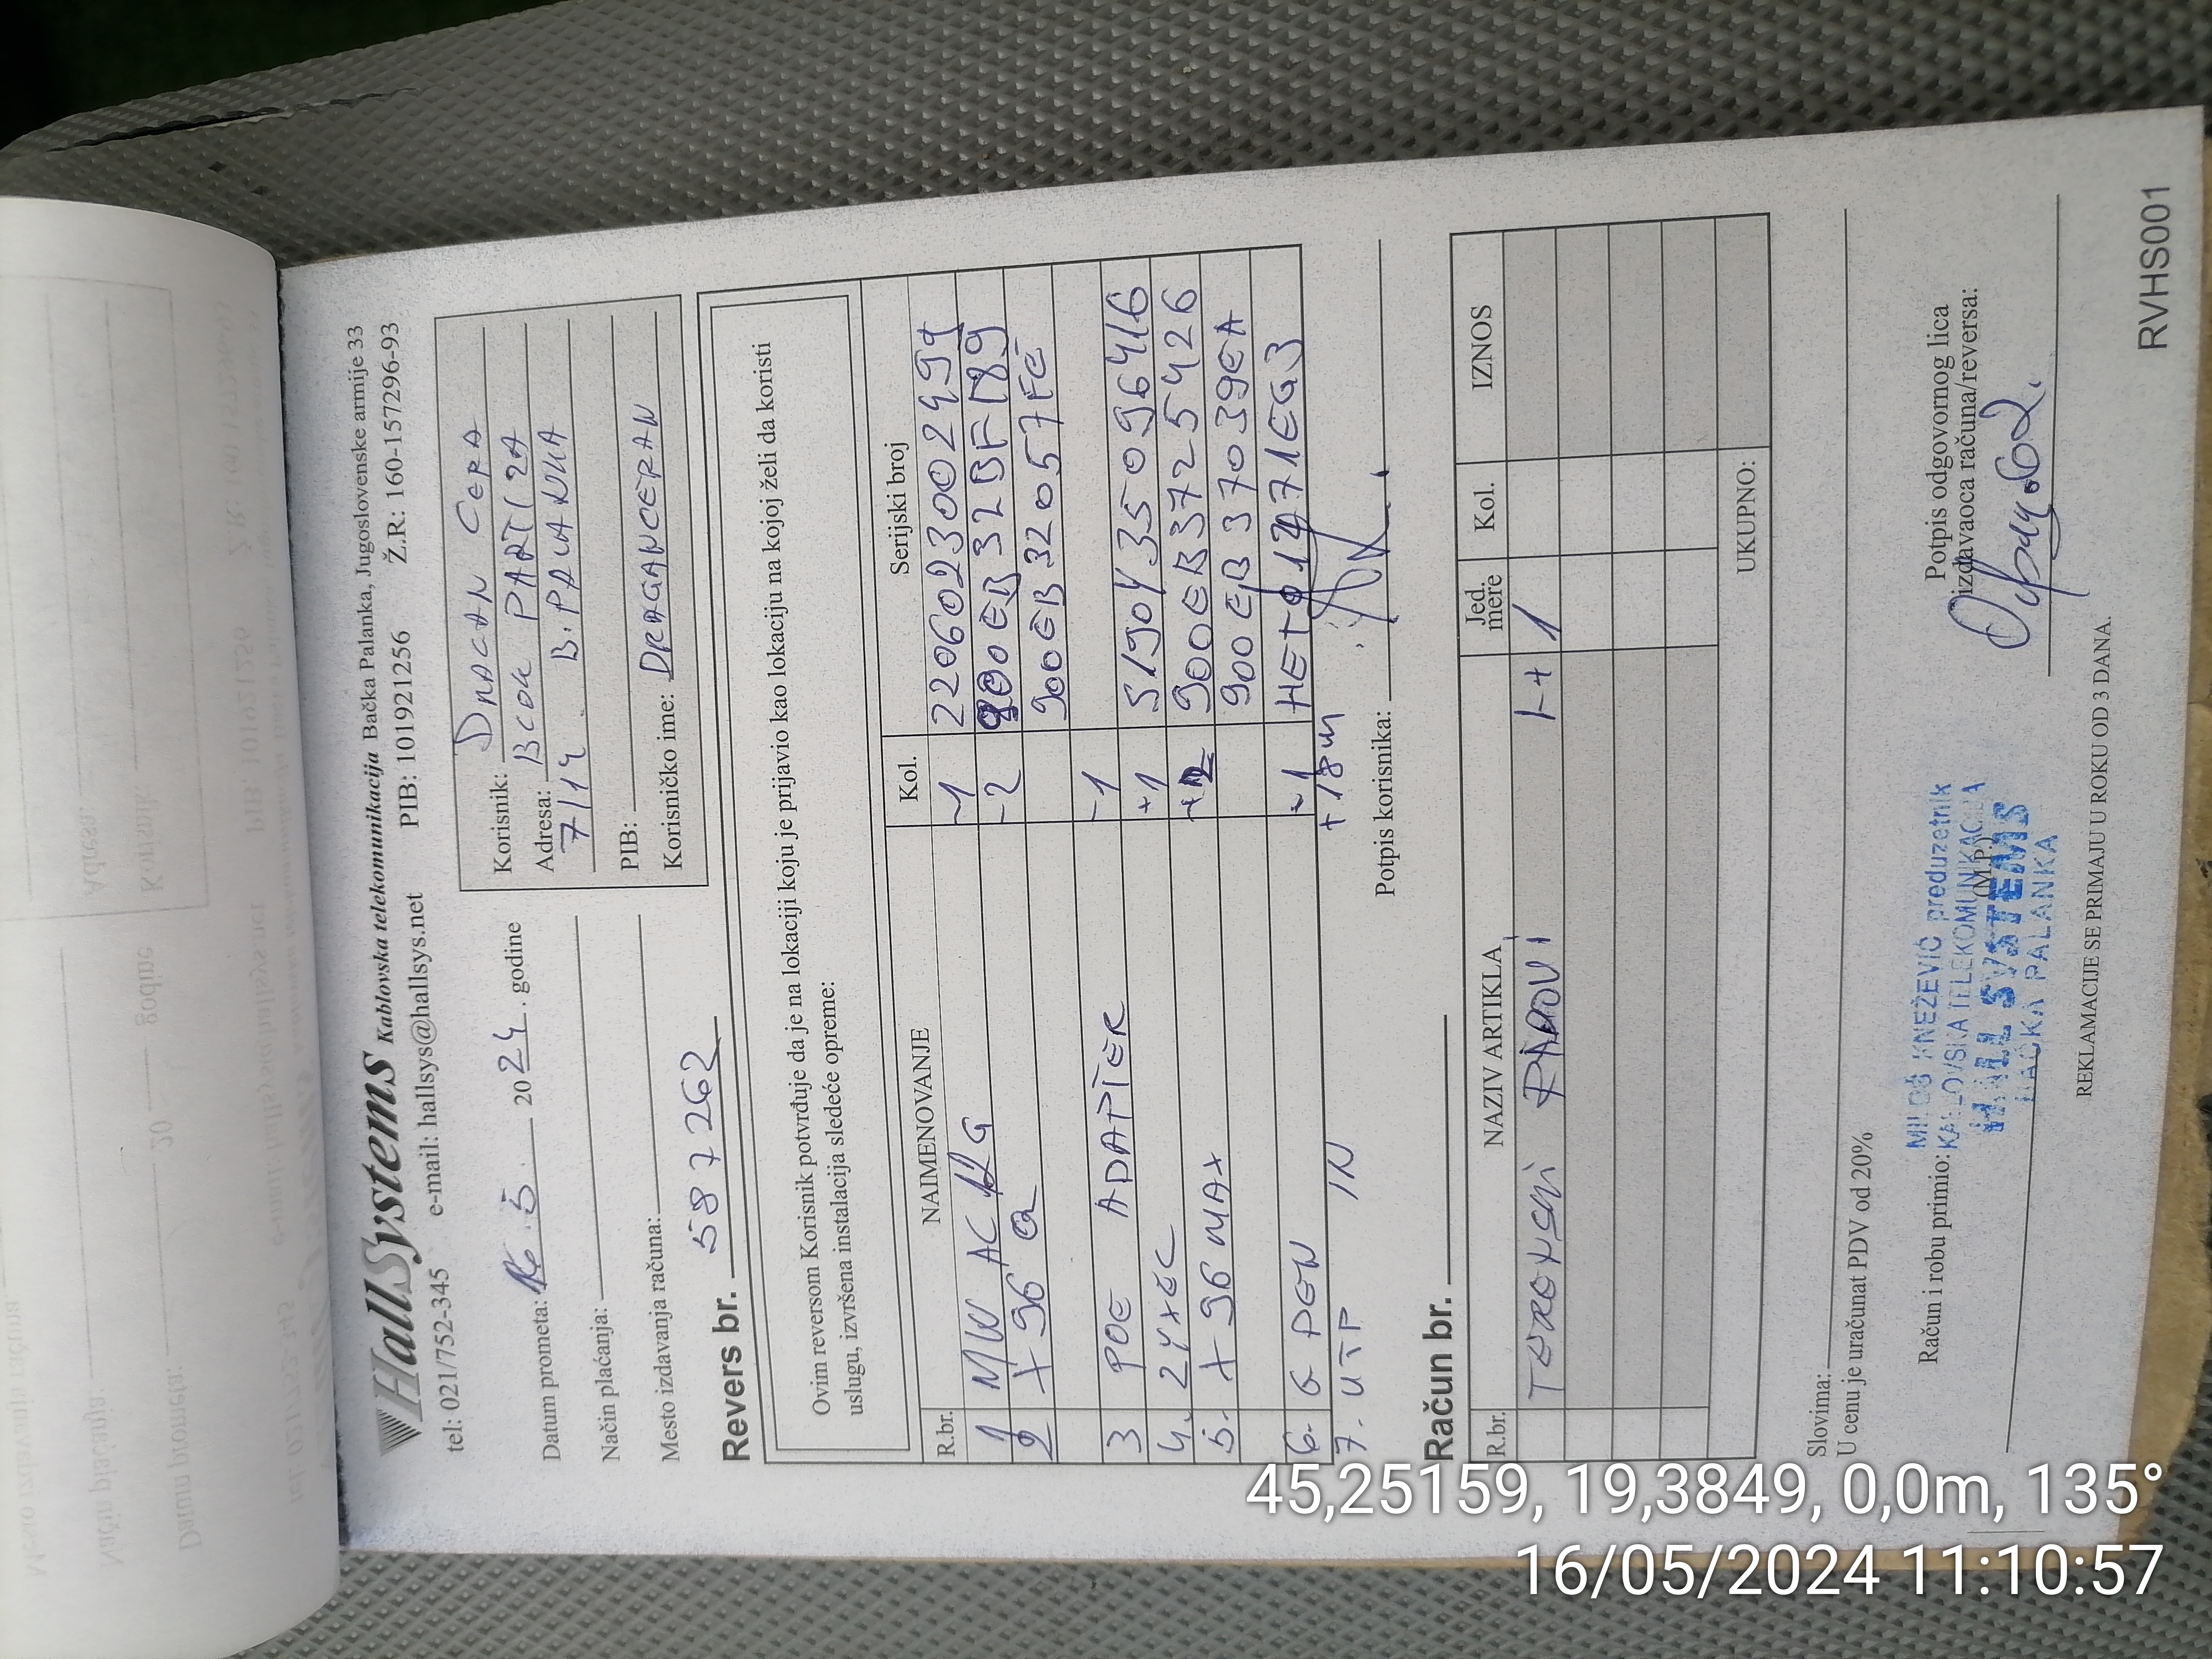 HallSystems Kablovska telekomunikacija Bačka Palanka, Jugoslovenske armije 33
tel: 021/752-345 e-mail: hallsys@hallsys.net PIB: 101921256 Ž.R: 160-157296-93
Datum prometa: 16.5. 2024. godine
Način plaćanja:
Mesto izdavanja računa:
Korisnik:
Adresa:
7/14 B. PALANKA
PIB:
Korisničko ime: DRAGANCERAN
Revers br. 587262
Ovim reversom Korisnik potvrđuje da je na lokaciji koju je prijavio kao lokaciju na kojoj želi da koristi
uslugu, izvršena instalacija sledeće opreme:
R.br. NAIMENOVANJE Kol. Serijski broj
1 MW AC -1
2 X 96 Q -2 900EB32BF189
900EB32057FE
3 POE ADAPTER -1
4. ZYXEL +1 S190Y35096416
5. X 96 MAX 900EB3725426
900EB37039EA
6. G PON +1
7. UTP IN +18m
Potpis korisnika:
Račun br.
R.br. NAZIV ARTIKLA Jed. mere Kol. IZNOS
TERENSKI RADOVI 1
UKUPNO:
Slovima:
U cenu je uračunat PDV od 20%
Račun i robu primio:
MILOŠ KNEŽEVIĆ preduzetnik
KABLOVSKA TELEKOMUNIKACIJA
(M.P.)
HALL SYSTEMS
BAČKA PALANKA
Potpis odgovornog lica
izdavaoca računa/reversa:
REKLAMACIJE SE PRIMAJU U ROKU OD 3 DANA.
RVHS001
45,25159, 19,3849, 0,0m, 135°
16/05/2024 11:10:57